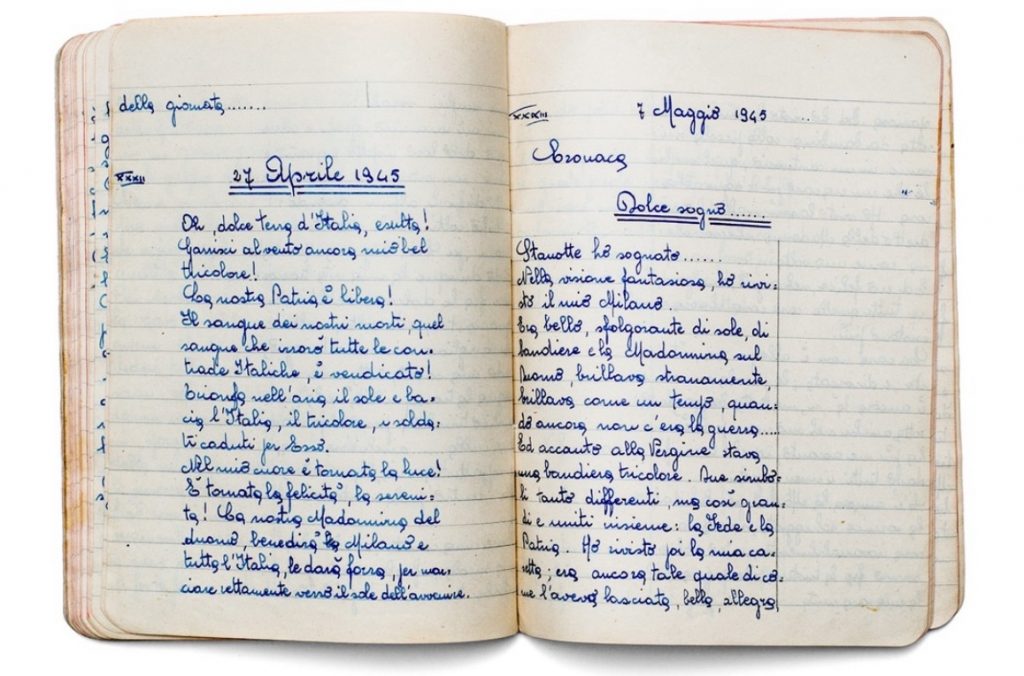 della giornata.......
XXXII
27 Aprile 1945
Oh, dolce terra d'Italia, esulta!
Garrisci al vento ancora mio bel
tricolore!
La nostra Patria è libera!
Il sangue dei nostri morti, quel
sangue che irrorò tutte le con-
trade Italiche, è vendicato!
Trionfa nell'aria il sole e ba-
cia l'Italia, il tricolore, i solda-
ti caduti per Essa.
Nel mio cuore è tornata la luce!
È tornata la felicità, la sereni-
tà! La nostra Madonnina del
duomo, benedirà la Milano e
tutta l'Italia, le darà forza, per mar-
ciare rettamente verso il sole dell'avvenire.
XXXIII
7 Maggio 1945
Cronaca
Dolce sogno......
Stanotte ho sognato......
Nella visione fantasiosa, ho rivi-
sto il mio Milano.
Era bello, sfolgorante di sole, di
bandiere e la Madonnina sul
Duomo, brillava stranamente,
brillava come un tempo, quan-
do ancora non c'era la guerra....
Ed accanto alla Vergine stava
una bandiera tricolore. Due simbo-
li tanto differenti, ma così gran-
di e uniti insieme: la Fede e la
Patria. Ho rivisto poi la mia ca-
setta; era ancora tale quale di co-
me l'avevo lasciata, bella, allegra